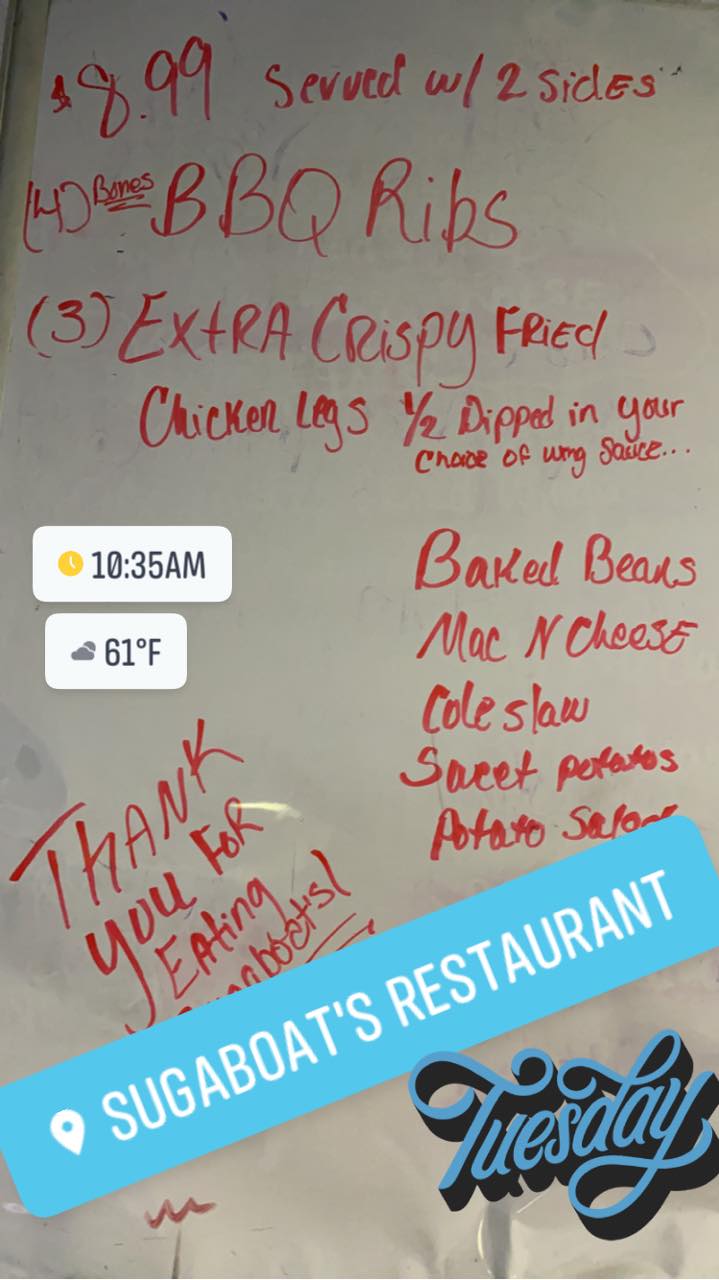 $8.99 Served w/ 2 sides
(4) Bones BBQ Ribs
(3) Extra Crispy Fried
Chicken Legs 1/2 Dipped in your
choice of wing sauce...
10:35AM
61°F
Baked Beans
Mac N Cheese
Cole slaw
Sweet potatos
Potato
THANK
you FOR
Eating
SUGABOAT'S RESTAURANT
Tuesday